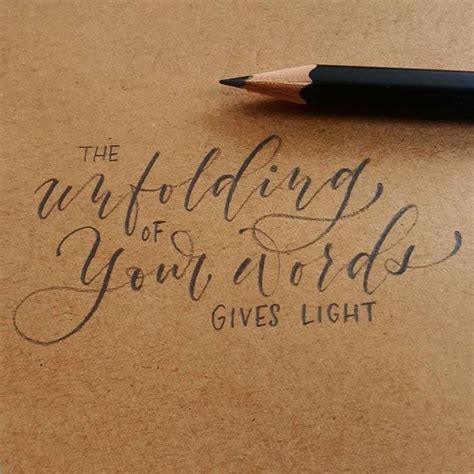 THE
unfolding
OF
Your words
GIVES LIGHT